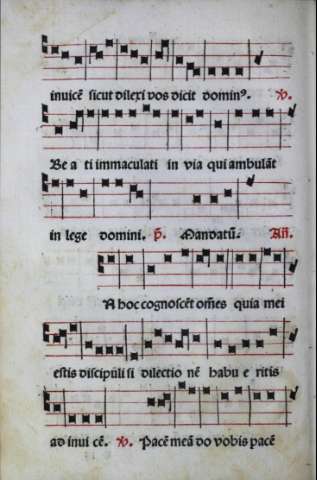 inuicē sicut dilexi vos dicit domin⁹. ℣.
Be a ti immaculati in via qui ambulāt
in lege domini. p̄. Mandatū. Añ.
In hoc cognoscēt om̄es quia mei
estis discipūli si dilectio nē habu e ritis
ad inui cē. ℣. Pacē meā do vobis pacē